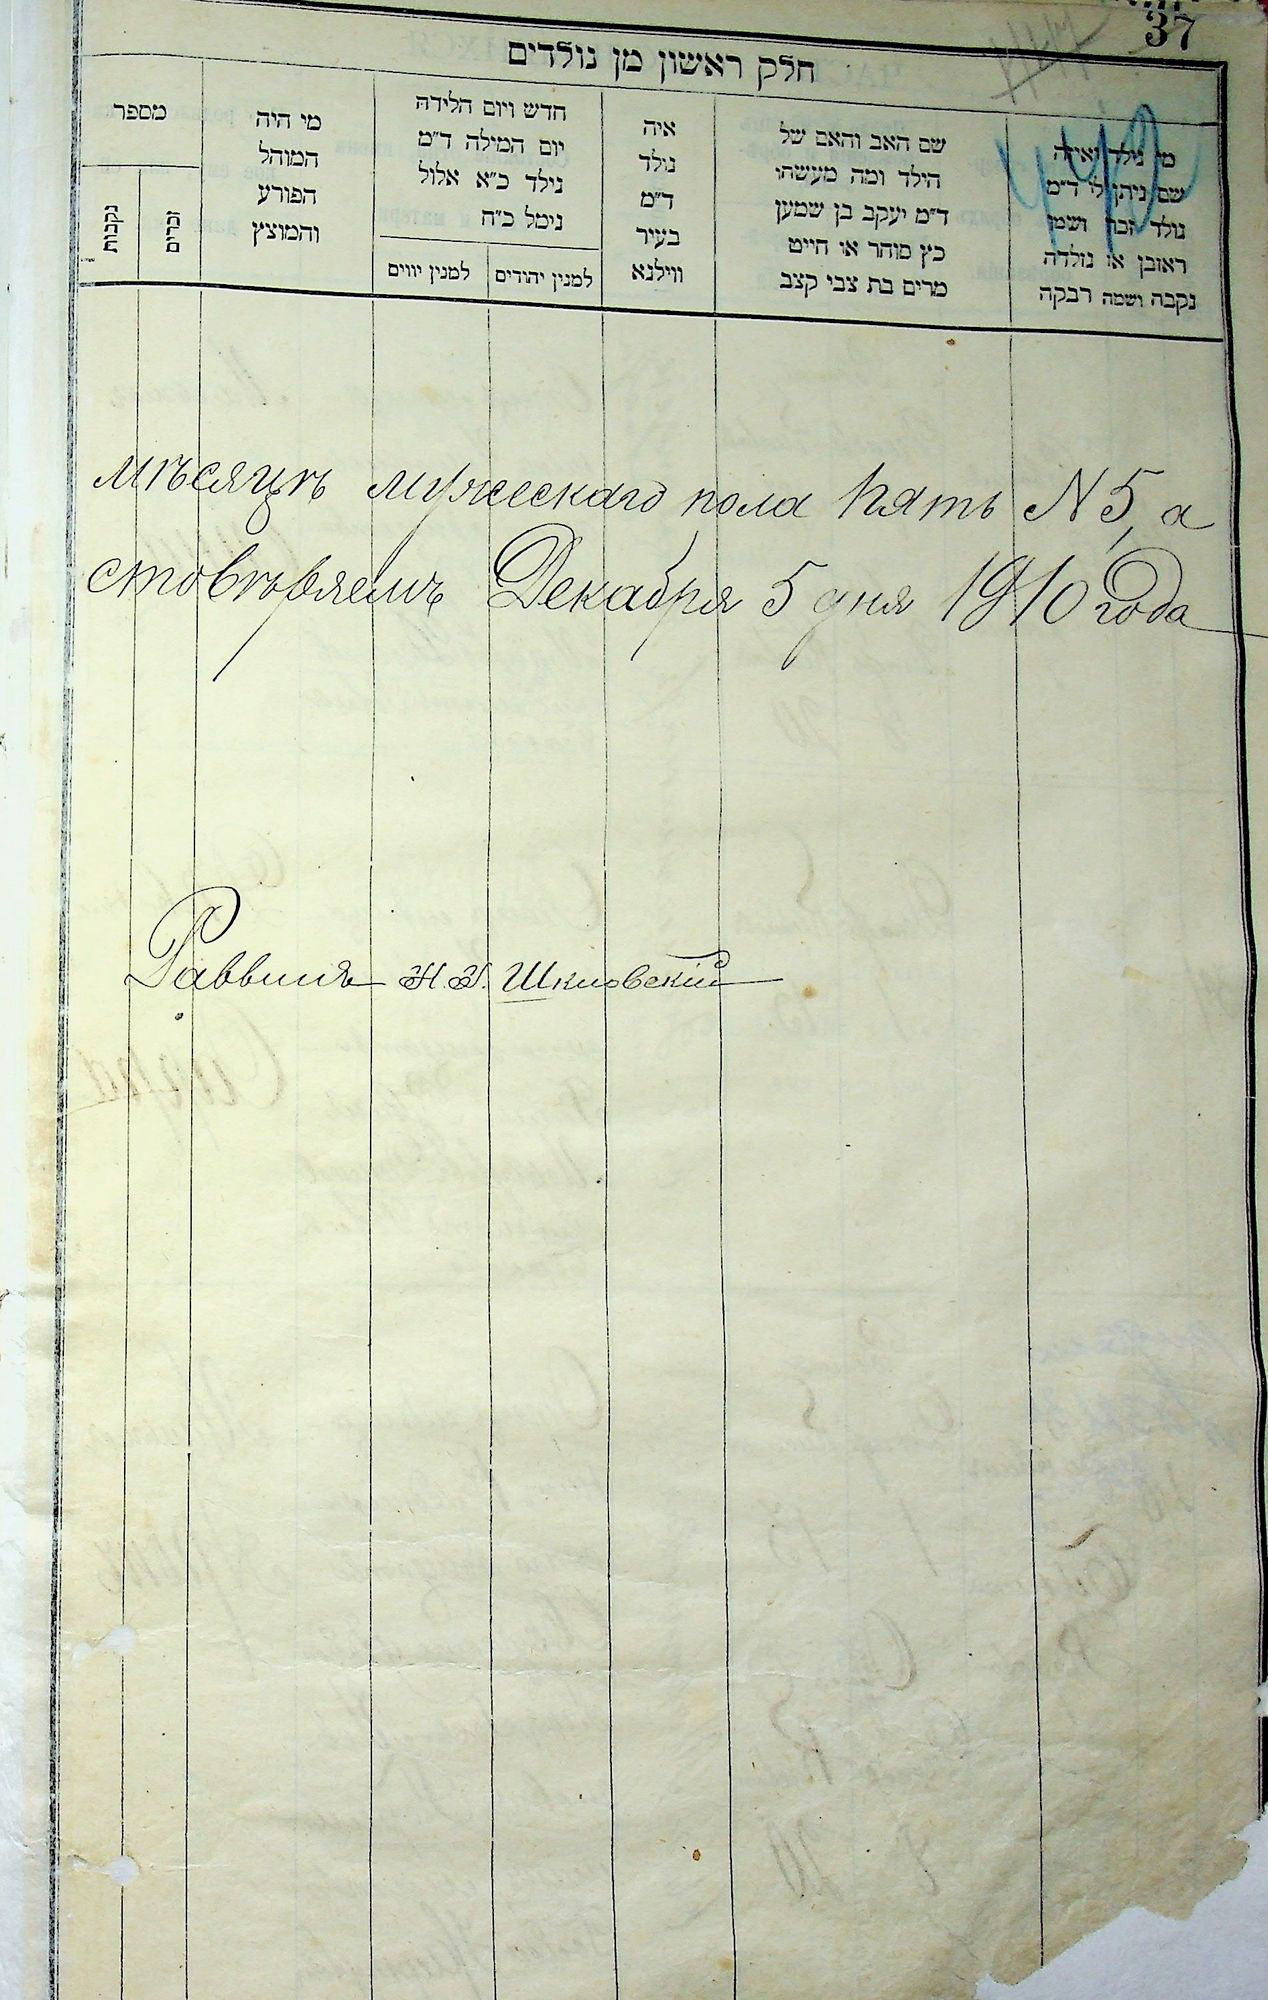 37
חלק ראשון מן נולדים
מי נילד ואיזה
שם ניתן לו ד״מ
נולד זכר ושמו
ראובן או נולדה
נקבה ושמה רבקה
שם האב והאם של
הילד ומה מעשהו
ד״מ יעקב בן שמען
כץ סוחר או חייט
מרים בת צבי קצב
איה
נולד
ד״מ
בעיר
ווילנא
חדש ויום הלידה
יום המילה ד״מ
נילד כ״א אלול
נימל כ״ח
למנין יהודים
למנין יווים
מי היה
המוהל
הפורע
והמוצץ
מספר
זכרים
נקבות
мѣсяцѣ мужескаго пола пять N 5, а
стовѣряемъ Декабря 5 дня 1910 года
Раввинъ Шкловскій